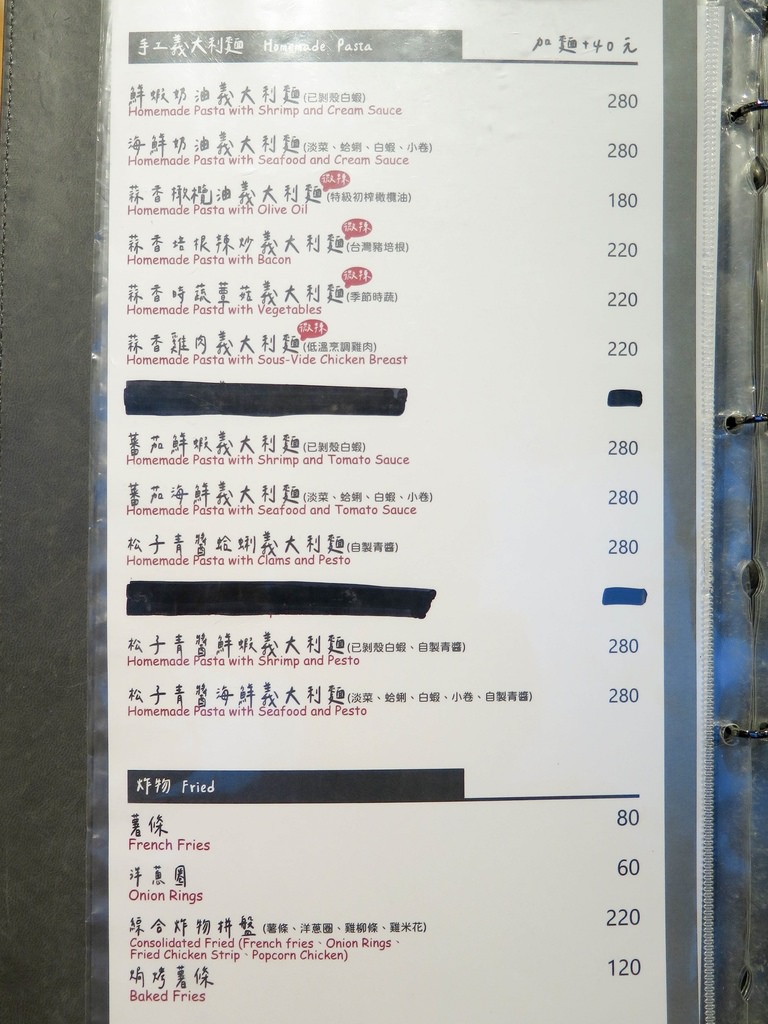 手工義大利麵 Homemade Pasta 加麵+40元
鮮蝦奶油義大利麵(已剝殼白蝦) 280
Homemade Pasta with Shrimp and Cream Sauce
海鮮奶油義大利麵(淡菜、蛤蜊、白蝦、小卷) 280
Homemade Pasta with Seafood and Cream Sauce
蒜香橄欖油義大利麵 微辣 (特級初榨橄欖油) 180
Homemade Pasta with Olive Oil
蒜香培根辣炒義大利麵 微辣 (台灣豬培根) 220
Homemade Pasta with Bacon
蒜香時蔬蕈菇義大利麵 微辣 (季節時蔬) 220
Homemade Pasta with Vegetables
蒜香雞肉義大利麵 微辣 (低溫烹調雞肉) 220
Homemade Pasta with Sous-Vide Chicken Breast
蕃茄鮮蝦義大利麵(已剝殼白蝦) 280
Homemade Pasta with Shrimp and Tomato Sauce
蕃茄海鮮義大利麵(淡菜、蛤蜊、白蝦、小卷) 280
Homemade Pasta with Seafood and Tomato Sauce
松子青醬蛤蜊義大利麵(自製青醬) 280
Homemade Pasta with Clams and Pesto
松子青醬鮮蝦義大利麵(已剝殼白蝦、自製青醬) 280
Homemade Pasta with Shrimp and Pesto
松子青醬海鮮義大利麵(淡菜、蛤蜊、白蝦、小卷、自製青醬) 280
Homemade Pasta with Seafood and Pesto
炸物 Fried
薯條 80
French Fries
洋蔥圈 60
Onion Rings
綜合炸物拼盤 (薯條、洋蔥圈、雞柳條、雞米花) 220
Consolidated Fried (French fries、Onion Rings、
Fried Chicken Strip、Popcorn Chicken)
焗烤薯條 120
Baked Fries